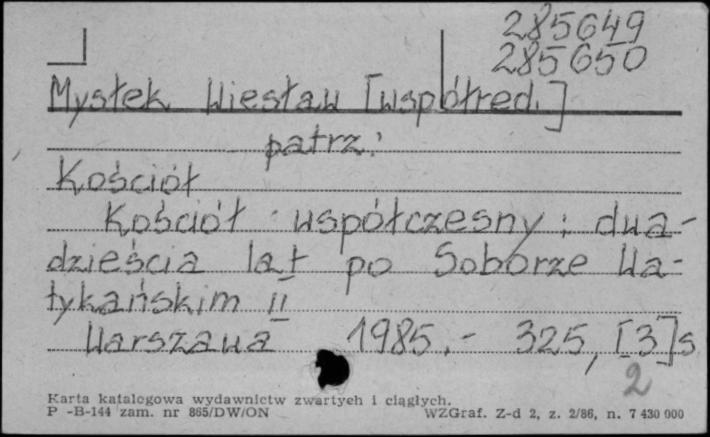 285649
285650
Mysłek Wiesław [współred.]
patrz:
Kościół
Kościół współczesny : dwa-
dzieścia lat po Soborze Wa-
tykańskim II
Warszawa 1985.- 325, [3]s
2
Karta katalogowa wydawnictw zwartych i ciągłych.
P -B-144 zam. nr 865/DW/ON WZGraf. Z-d 2, z. 2/86, n. 7 430 000